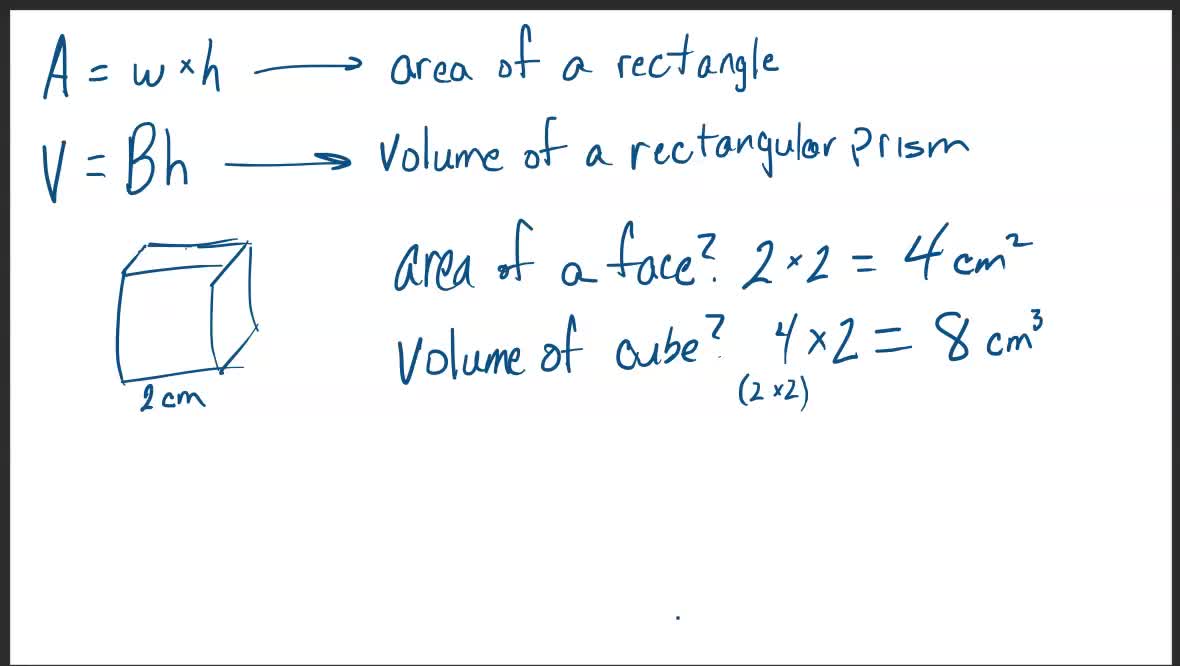 A = w × h → area of a rectangle
V = Bh → Volume of a rectangular prism
area of a face? 2 × 2 = 4 cm²
Volume of cube? 4 × 2 = 8 cm³
(2 × 2)
2 cm